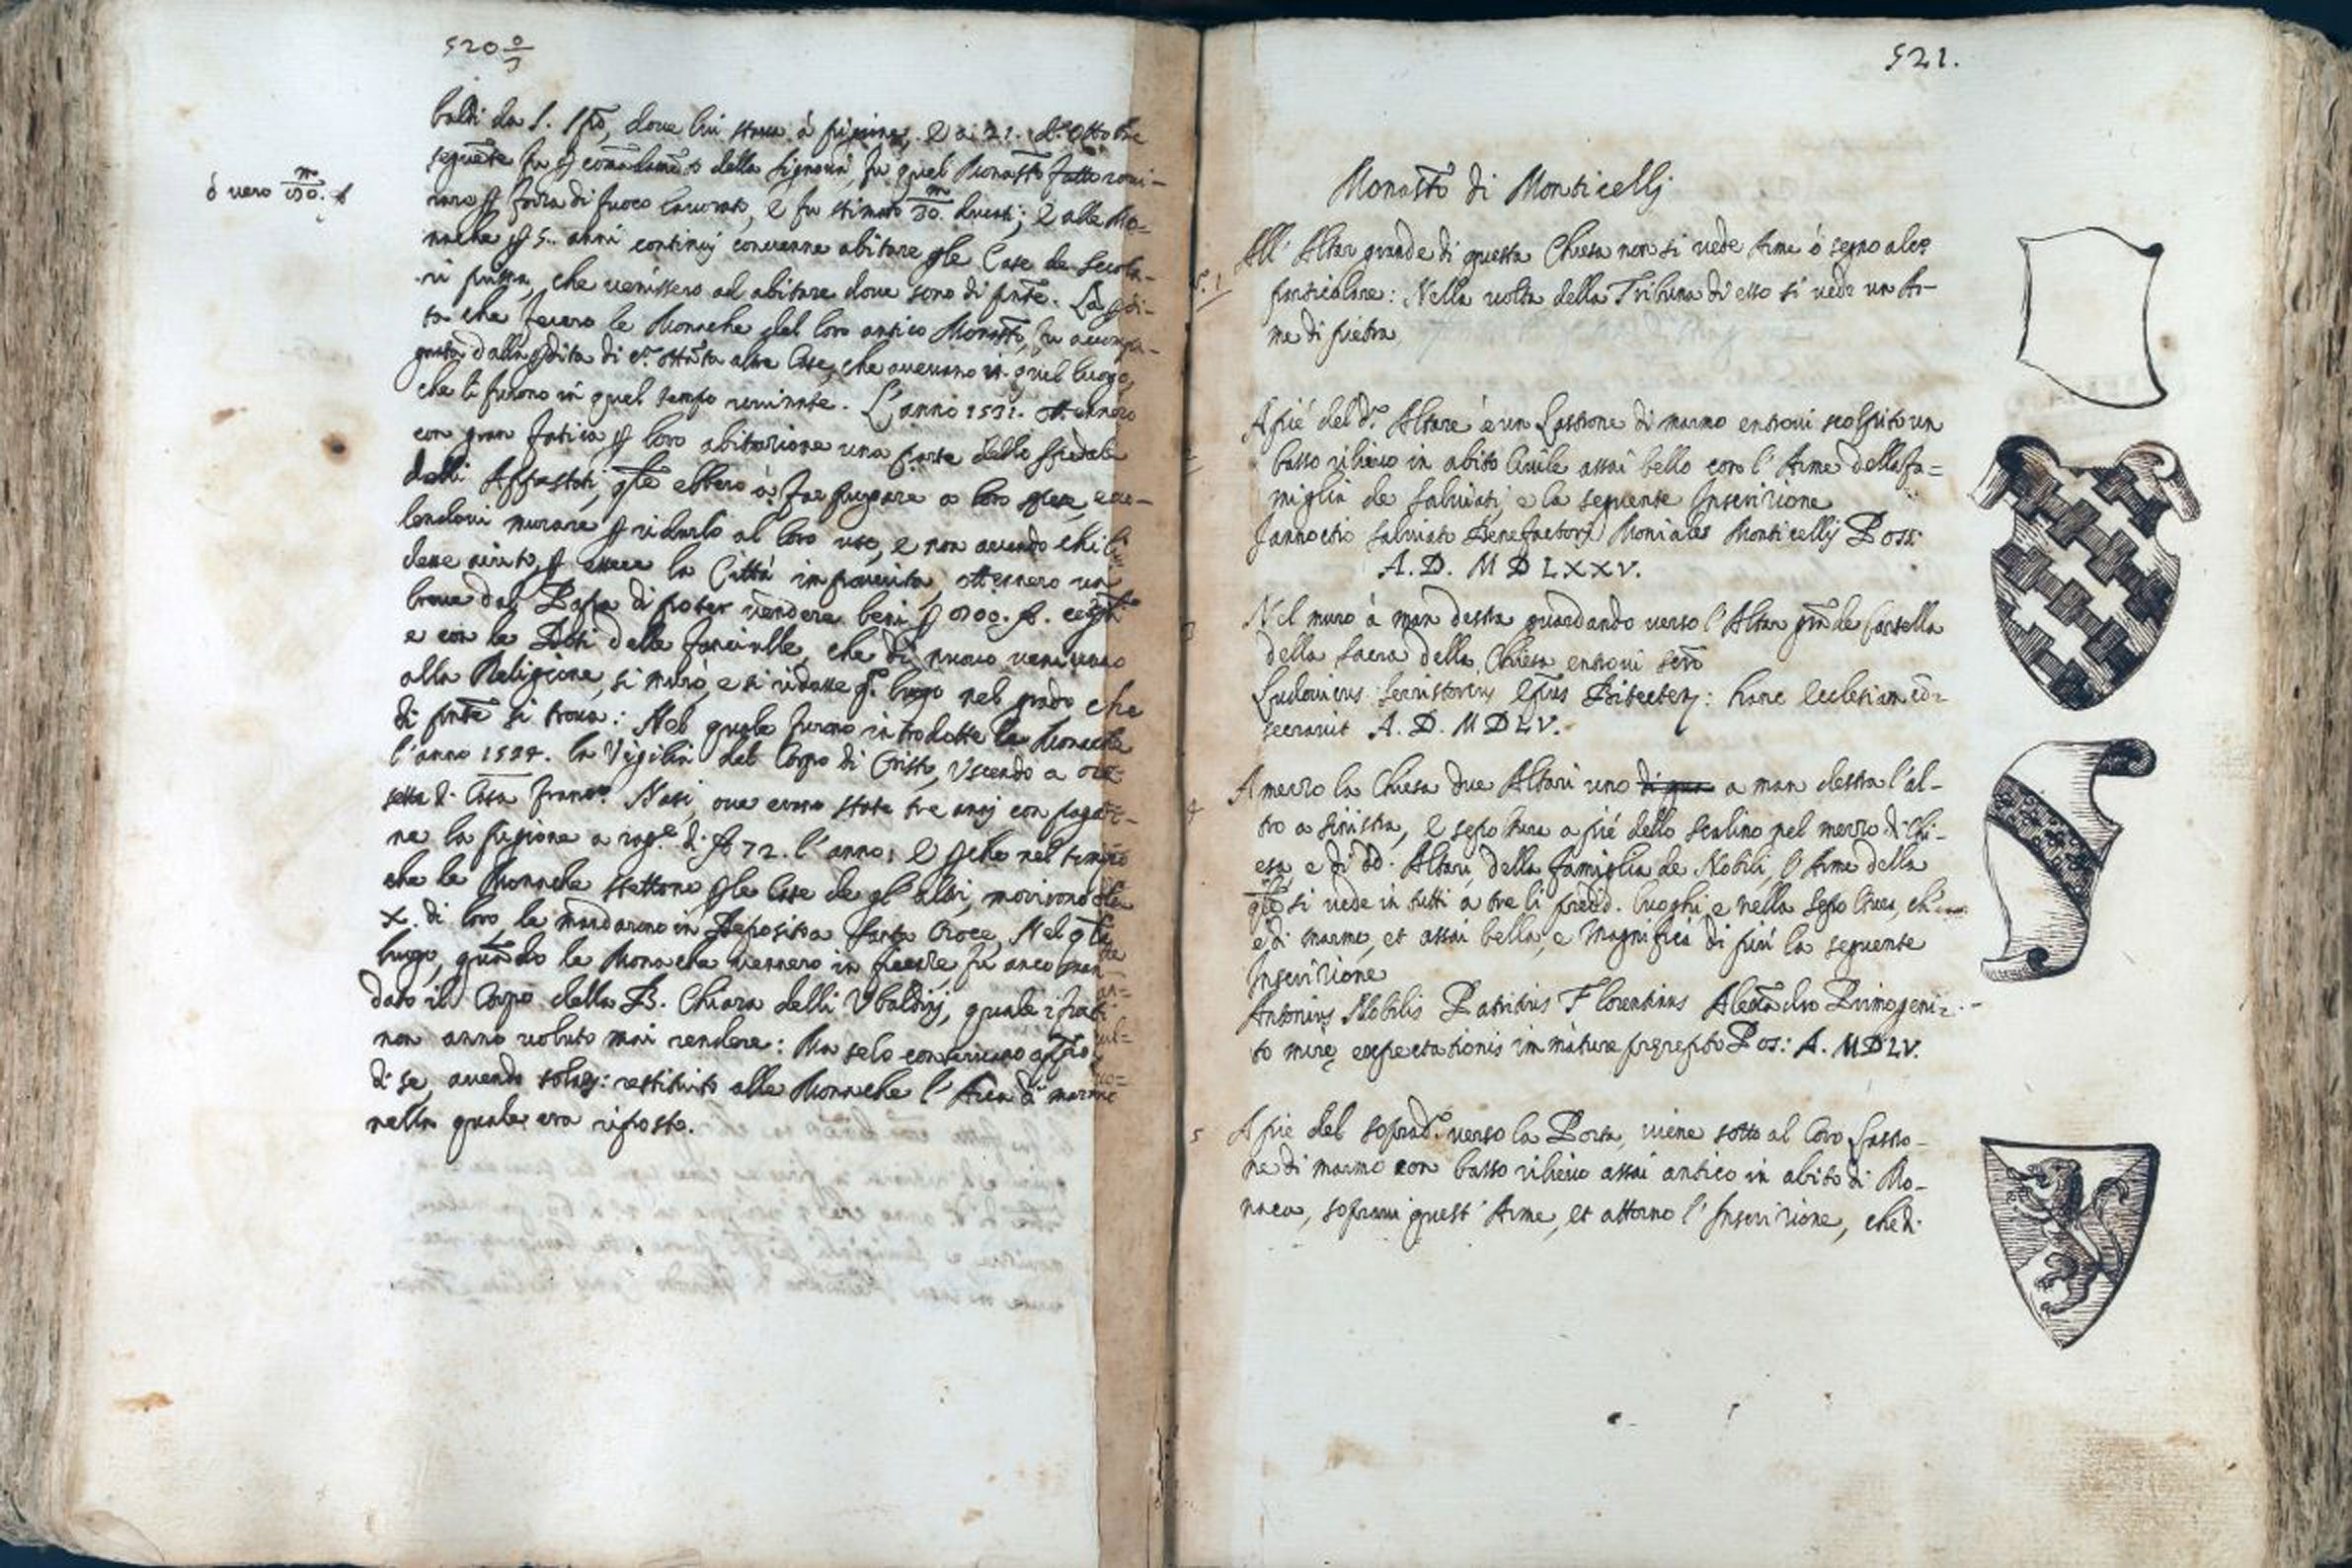 520
baldi da S. Spō, dove lui stava à pigione, E a i 21. d'Ottobre
seguēte fu comādamēto della Signoria, fu quel Monastō fatto rovi-
nare forza di fuoco lavorato, e fu stimato 30. ducati; E alle Mo-
nache 5. anni continui convenne abitare le Case de Secola-
ri prima, che venissero ad abitare dove sono di pnte. La pdi-
ta che fecero le Monache del loro antico Monastō, fu accompa-
gnata dalla pdita di altre Case, che avevano in quel luogo,
che li furono in quel tempo rovinate. L'anno 1531. ottennero
con gran fatica loro abitazione una parte dello spedale
delli, ebbero à far a loro spese, vo-
lendovi murare ridurlo al loro uso, e non avendo chi li
desse aiuto, essere la Città impoverita, ottennero un
breve dal Papa di poter vendere beni
e con le Doti delle fanciulle, che di nuovo venivano
alla Religione, si murò, e si ridusse luogo nel grado che
di pnte si trova: Nel quale furono introdotte le Monache
l'anno 1534. la Vigilia del Corpo di Cristo, Uscendo a
di Casa Franc.º Nasi, ove erano state tre anni con pagar-
ne la pigione a rag.e di 72. l'anno; E pche nel tempo
che le Monache stettono ple Case de gl'altri, morirono
X. di loro, le mandarono in Deposito a Santa Croce, Nel qle
luogo, quādo le Monache vennero in Firenze fu anco man-
dato il Corpo della B. Chiara delli Ubaldini, quale i frati
non anno voluto mai rendere: Ma selo conservano appresso
di se, avendo solam: restituito alle Monache l'Arca di marmo
nella quale era riposto.
ò vero
521.
Monastō di Monticelli
S. 1
All'Altar grande di questa Chiesa non si vede Arme ò segno alcō
particolare: Nella volta della Tribuna di esso si vede un Ar-
me di pietra
2
A piè del d.º Altare è un Lastrone di marmo entrovi scolpito un
basso rilievo in abito Civile assai bello con l'Arme della fa=
miglia de Salviati, e la seguente Inscrizione
Jannoctio Salviato Benefactori Moniales Monticellij Poss:
A. D. MDLXXV.
3
Nel muro à man destra guardando verso l'Altar grāde Cartella
della Sacra della Chiesa entrovi scrō
Ludovicus Serristorius Epūs Bitecten: hanc Ecclesiam cō=
secravit A. D. MDLV.
4
A mezzo la Chiesa due Altari uno di qua a man destra l'al-
tro a sinistra, e sepoltura a piè dello scalino nel mezzo di Chi-
esa, e di dd. Altari, della famiglia de Nobili, l'Arme della
qle si vede in tutti a tre li predd. luoghi e nella sepoltura, ch'
è di marmo, et assai bella, e magnifica di più la seguente
Inscrizione
Antonius Nobilis Patritius Florentinus Alexādro Primogeni-
to mirę expectationis immature prerepto Pos: A. MDLV.
5
A piè del soprad.º verso la Porta, viene sotto al Coro Lastro-
ne di marmo con basso rilievo assai antico in abito di Mo-
naca, sopravi quest'Arme, et attorno l'Inscrizione, che di